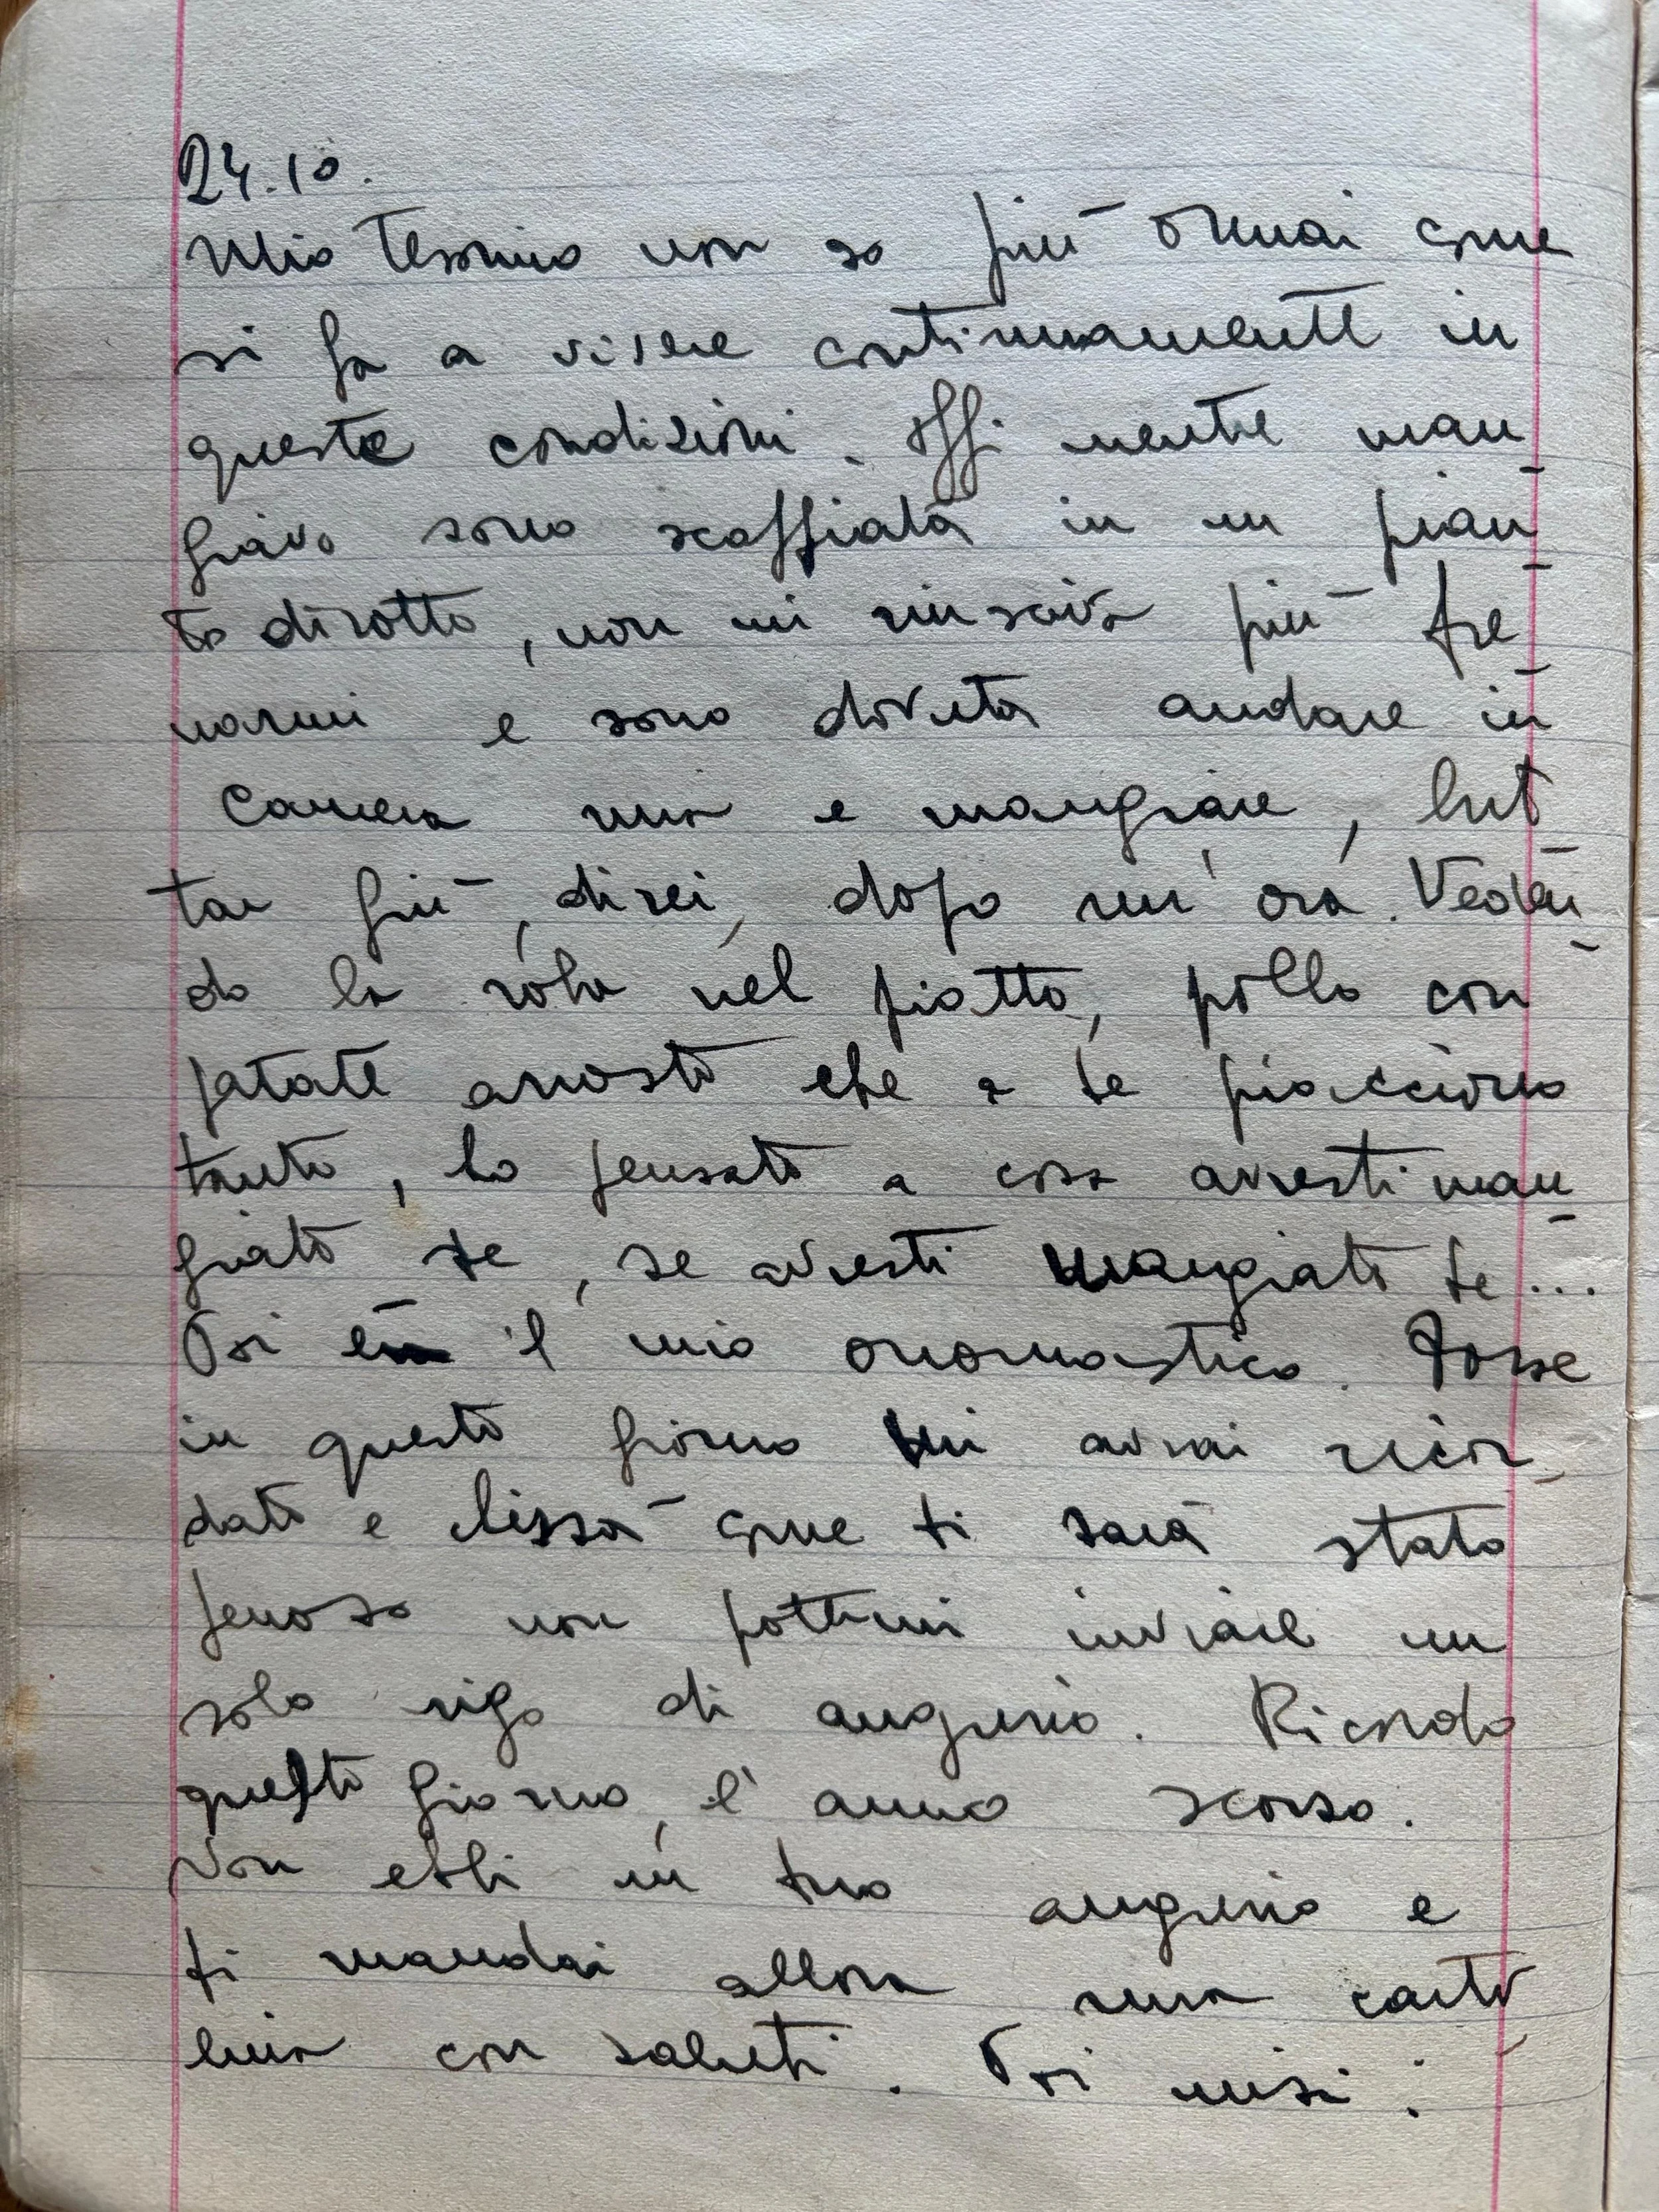 24.10.
Mio tesorino non so più ormai come
si fa a vivere continuamente in
queste condizioni. Oggi mentre man-
giavo sono scoppiata in un pian-
to dirotto, non mi riuscivo più fre-
narmi e sono dovuta andare in
camera mia e mangiare, but-
tar giù, direi, dopo un'ora. Veden-
do la roba nel piatto, pollo con
patate arrosto che a te piacciono
tanto, ho pensato a cosa avresti man-
giato te, se avresti mangiato te...
Poi era il mio onomastico. Forse
in questo giorno mi avrai ricor-
dato e chissà come ti sarà stato
penoso non potermi inviare un
solo rigo di augurio. Ricordo
questo giorno, l'anno scorso.
Non ebbi un tuo augurio e
ti mandai allora una carto-
lina con saluti. Poi misi: